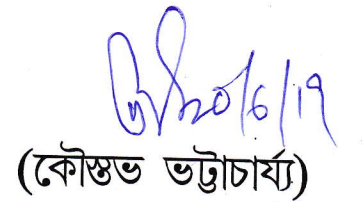 20/6/19
(কৌস্তভ ভট্টাচার্য্য)